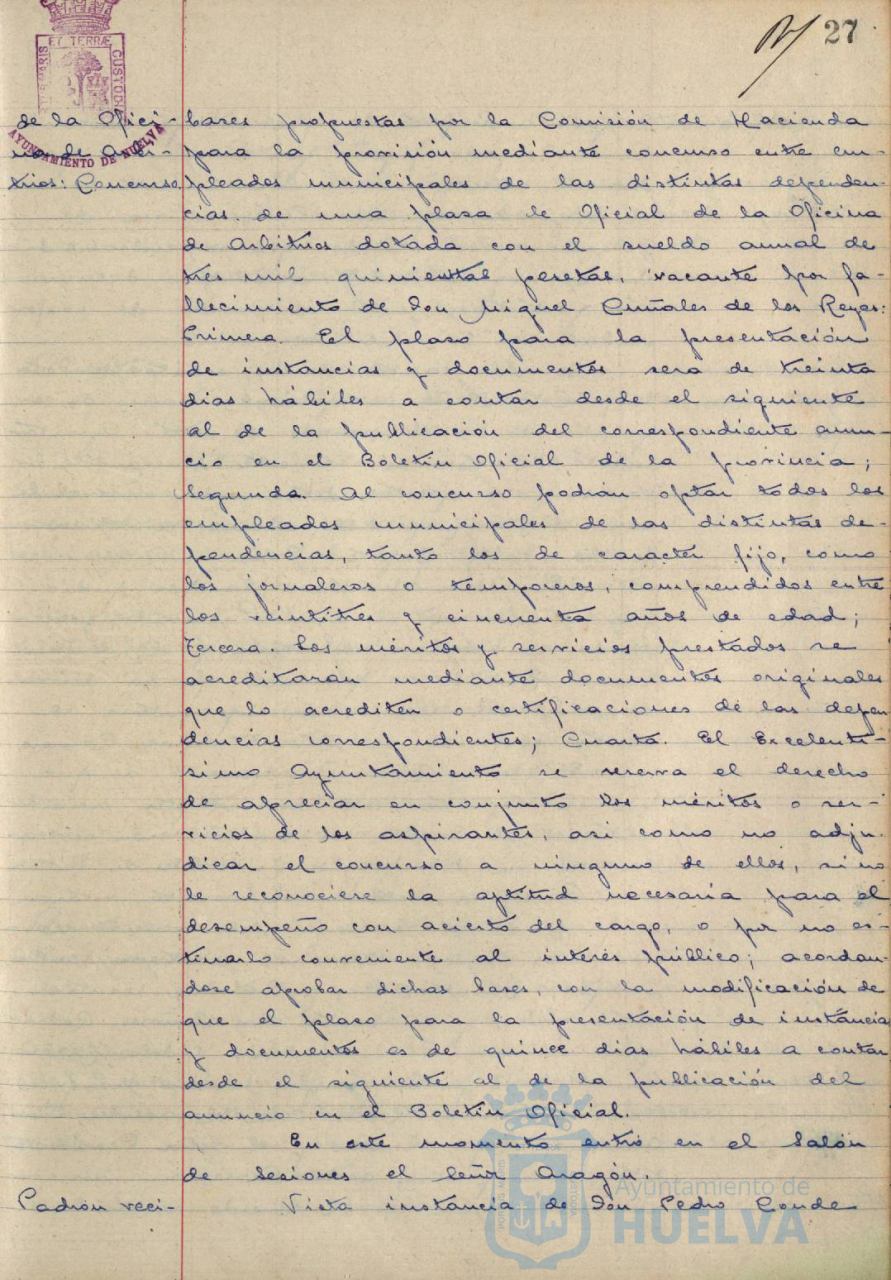 27
ET TERRÆ
CUSTODIA
AYUNTAMIENTO DE HUELVA
de la Ofici-
na de Arbi-
trios: Concurso.
bases propuestas por la Comisión de Hacienda
para la provisión mediante concurso entre em-
pleados municipales de las distintas dependen-
cias. de una plaza de Oficial de la Oficina
de Arbitrios dotada con el sueldo anual de
tres mil quinientas pesetas, vacante por fa-
llecimiento de Don Miguel Cuñales de los Reyes:
Primera. El plazo para la presentación
de instancias y documentos sera de treinta
dias hábiles a contar desde el siguiente
al de la publicación del correspondiente anun-
cio en el Boletín Oficial de la provincia;
Segunda. Al concurso podrán optar todos los
empleados municipales de las distintas de-
pendencias, tanto los de caracter fijo, como
los jornaleros o temporeros, comprendidos entre
los veintitres y cincuenta años de edad;
Tercera. Los méritos y servicios prestados se
acreditarán mediante documentos originales
que lo acrediten o certificaciones de las depen
dencias correspondientes; Cuarta. El Excelentí-
simo Ayuntamiento se reserva el derecho
de apreciar en conjunto los méritos o ser-
vicios de los aspirantes, asi como no adju-
dicar el concurso a ninguno de ellos, si no
le reconociere la aptitud necesaria para el
desempeño con acierto del cargo, o por no es-
timarlo conveniente al interés público; acordan-
dose aprobar dichas bases, con la modificación de
que el plazo para la presentación de instancia
y documentos es de quince dias hábiles a contar
desde el siguiente al de la publicación del
anuncio en el Boletín Oficial.
En este momento entró en el Salón
de Sesiones el Señor Aragón.
Padrón veci-
Vista instancia de Don Pedro Conde
Ayuntamiento de
HUELVA